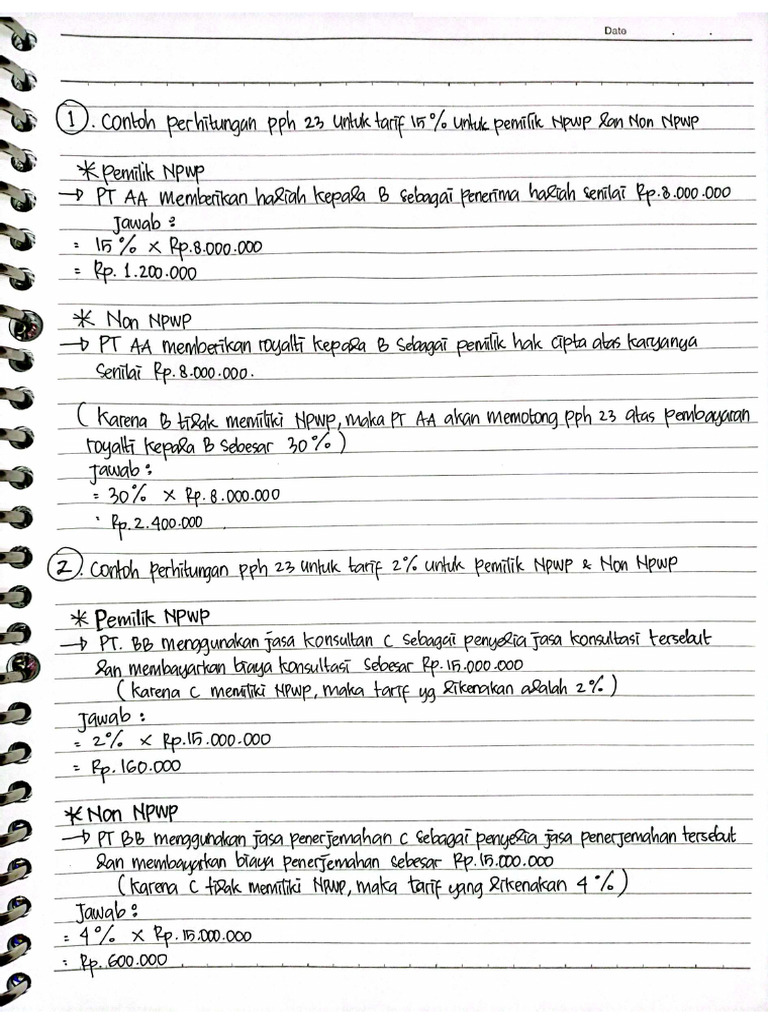 Date . .
1. Contoh perhitungan pph 23 untuk tarif 15% untuk pemilik NPWP dan Non NPWP
* Pemilik NPWP
→ PT AA memberikan hadiah kepada B sebagai penerima hadiah senilai Rp.8.000.000
Jawab :
= 15% × Rp.8.000.000
= Rp. 1.200.000
* Non NPWP
→ PT AA memberikan royalti kepada B sebagai pemilik hak cipta atas karyanya
senilai Rp.8.000.000.
( Karena B tidak memiliki NPWP, maka PT AA akan memotong pph 23 atas pembayaran
royalti kepada B sebesar 30% )
Jawab :
= 30% × Rp.8.000.000
: Rp.2.400.000
2. Contoh perhitungan pph 23 untuk tarif 2% untuk pemilik NPWP & Non NPWP
* Pemilik NPWP
→ PT. BB menggunakan jasa konsultan C sebagai penyedia jasa konsultasi tersebut
dan membayarkan biaya konsultasi sebesar Rp.15.000.000
( Karena C memiliki NPWP, maka tarif yg dikenakan adalah 2% )
Jawab :
= 2% × Rp.15.000.000
= Rp.160.000
* Non NPWP
→ PT BB menggunakan jasa penerjemahan C sebagai penyedia jasa penerjemahan tersebut
dan membayarkan biaya penerjemahan sebesar Rp.15.000.000
( Karena C tidak memiliki NPWP, maka tarif yang dikenakan 4% )
Jawab :
= 4% × Rp.15.000.000
= Rp.600.000